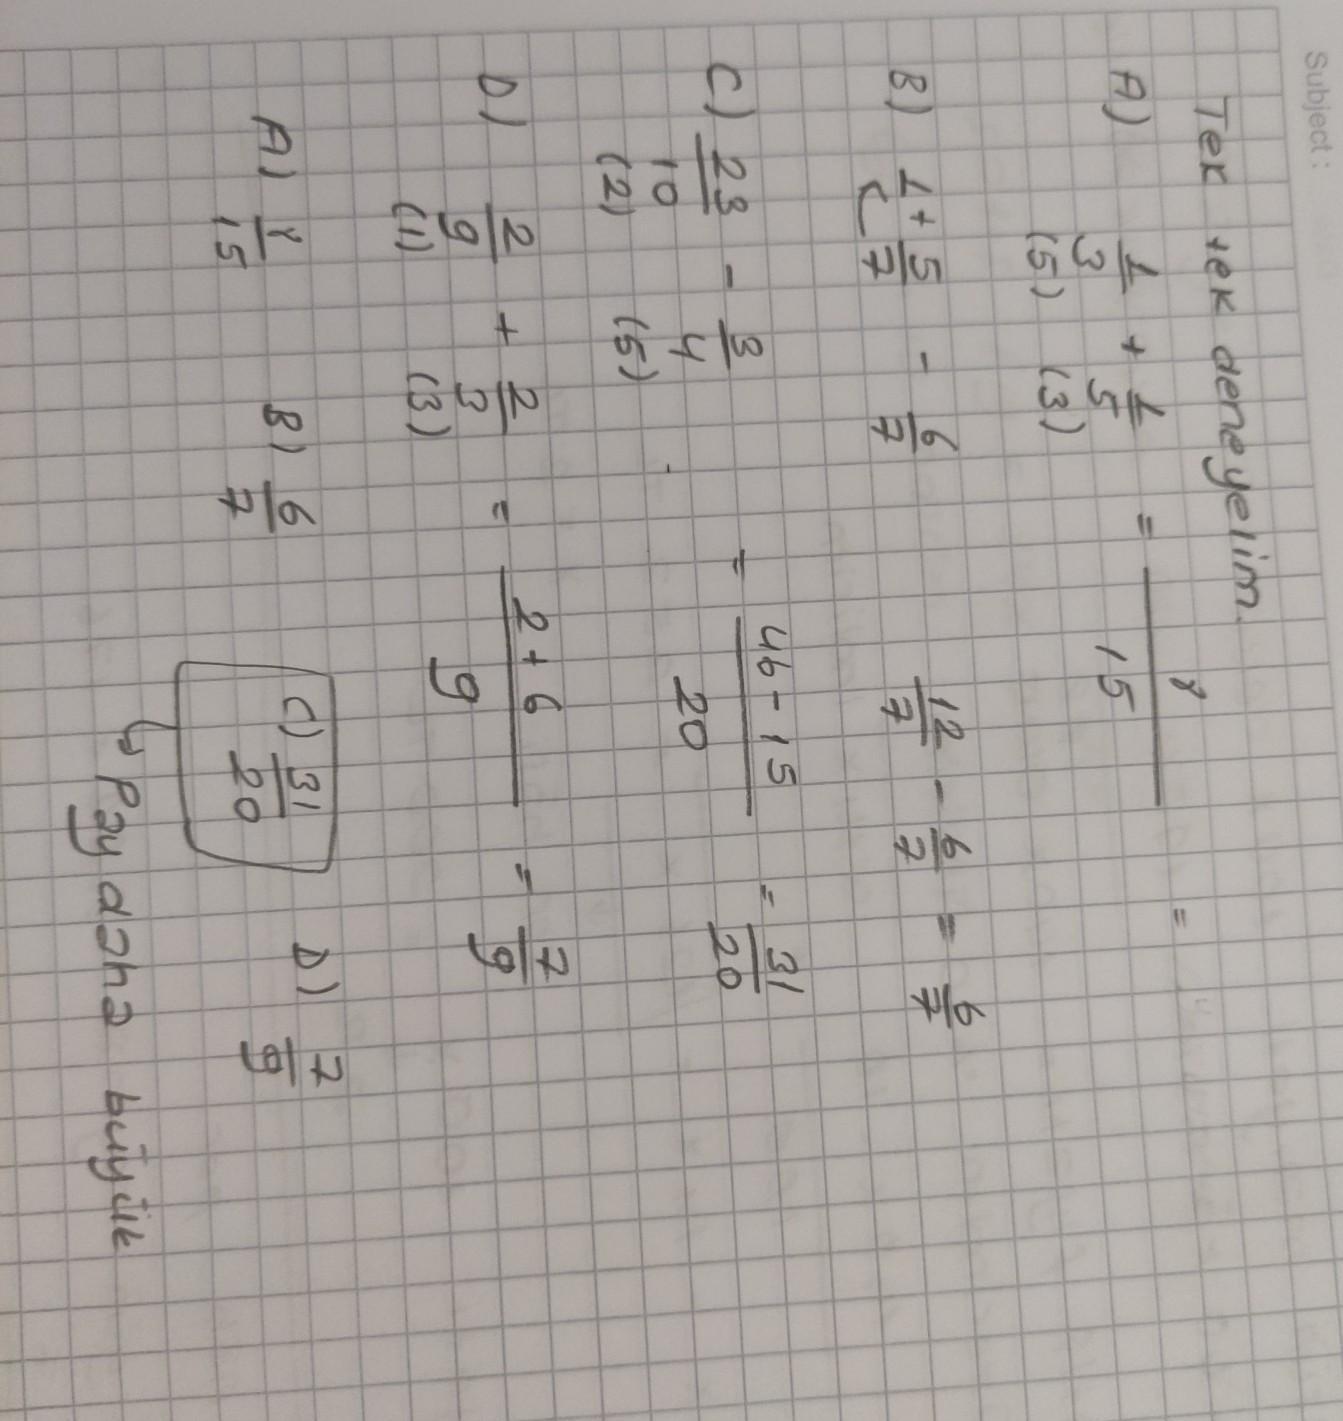 Subject:
Tek tek deneyelim.
A) 1/3 + 1/5 = 8/15 =
(5) (3)
B) 1 + 5/7 - 6/7 12/7 - 6/7 = 6/7
C) 23/10 - 3/4 = 46-15/20 = 31/20
(2) (5)
D) 2/9 + 2/3 = 2+6/9 = 7/9
(1) (3)
A) 8/15 B) 6/7 C) 31/20 D) 7/9
↳ Pay daha büyük